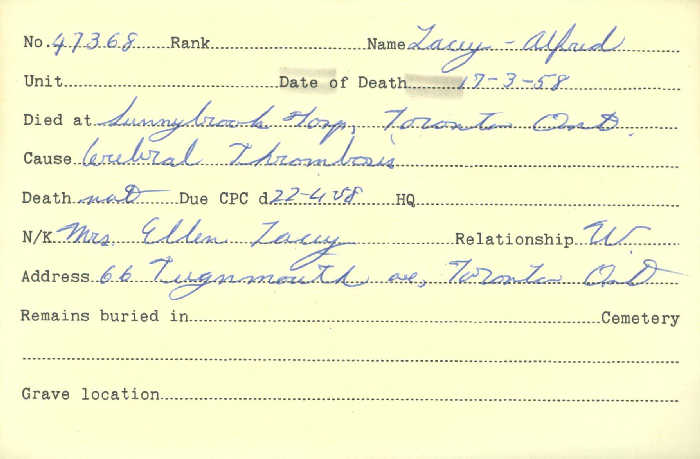 No. 47368 Rank Name Lacey - Alfred
Unit Date of Death 17-3-58
Died at Sunnybrook Hosp, Toronto Ont.
Cause Cerebral Thrombosis
Death not Due CPC d 22-4-58 HQ
N/K Mrs. Ellen Lacey Relationship W.
Address 66 Tugnmouth ave, Toronto Ont
Remains buried in Cemetery
Grave location